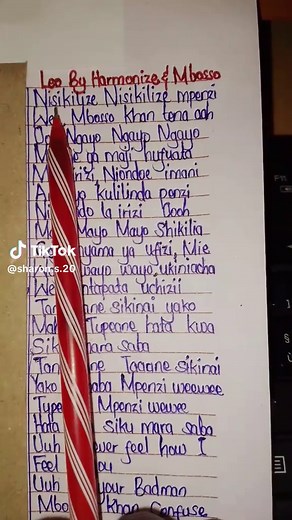 Leo By Harmonize & Mbosso
Nisikilize Nisikilize mpenzi
We Mbosso Khan tena aah
Ngayo Ngayo Ngayo
ya maji hufuata
irizi Niondoe imani
kulilinda penzi
do la irizi Oooh
Mayo Mayo Shikilia
nyama ya ufizi, Mie
mayo wayo ukiniacha
We ntapata Uchizii
Tan ane sikinai yako
Mah Tupeane hata kwa
Sik mara saba
Tan ne Taaane sikinai
Yako aba Mpenzi weewee
Type Mpenzi wewee
Hata siku mara saba
Uuh ever feel how I
Feel you
Uuh your Badman
Mbo Khan Confuse
TikTok
@sharon.s.20